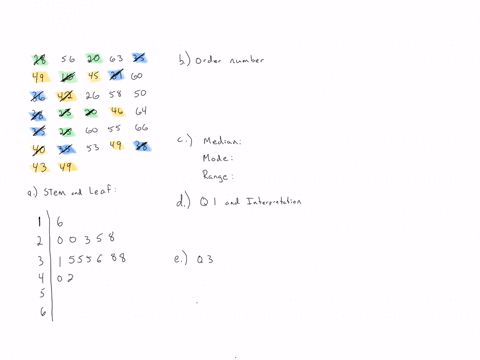 28 56 20 63 35
49 16 45 31 60
36 42 26 58 50
38 23 20 46 64
35 25 60 55 66
40 35 53 49 38
43 49
a.) Stem and Leaf:
1 | 6
2 | 0 0 3 5 8
3 | 1 5 5 5 6 8 8
4 | 0 2
5 |
6 |
b.) Order number
c.) Median:
Mode:
Range:
d.) Q1 and Interpretation
e.) Q3